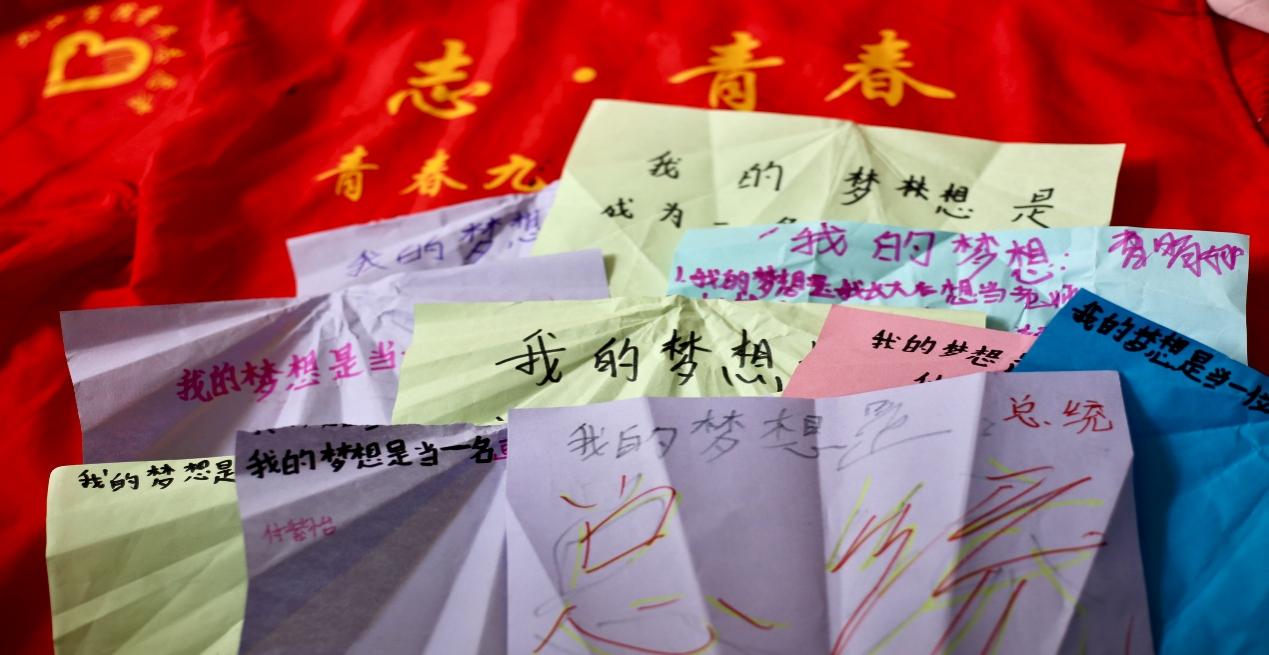 志·青春
青春九
我的梦想是
成为一名
我的梦想
我的梦想:
1.我的梦想是我长大后想当
我的梦想是当
我的梦想
我的梦想
我的梦想是当一位
我的梦想是
我的梦想是当一名
我的梦想是:总统
总统